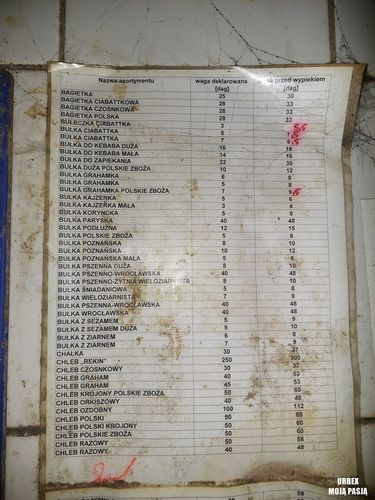 Nazwa asortymentu waga deklarowana przed wypiekiem
[dag] [dag]
BAGIETKA 25 30
BAGIETKA CIABATTKOWA 28 33
BAGIETKA CZOSNKOWA 28 33
BAGIETKA POLSKA 28 33
BUŁECZKA CIABATTKA 3 5,5
BUŁKA CIABATTKA 5
BUŁKA CIABATTKA 7 9,5
BUŁKA DO KEBABA DUŻA 16 18
BUŁKA DO KEBABA MAŁA 14 16
BUŁKA DO ZAPIEKANIA 22 30
BUŁKA DUŻA POLSKIE ZBOŻA 10 12
BUŁKA GRAHAMKA 6 8
BUŁKA GRAHAMKA 5 8
BUŁKA GRAHAMKA POLSKIE ZBOŻA 7 9,5
BUŁKA KAJZERKA 5 6
BUŁKA KAJZERKA MAŁA 3 4
BUŁKA KORYNCKA 5 6
BUŁKA PARYSKA 40 48
BUŁKA PODŁUŻNA 12 15
BUŁKA POLSKIE ZBOŻA 5 6
BUŁKA POZNAŃSKA 8 10
BUŁKA POZNAŃSKA 10 12
BUŁKA POZNAŃSKA MAŁA 5 6
BUŁKA PSZENNA DUŻA 8 10
BUŁKA PSZENNO-WROCŁAWSKA 40 48
BUŁKA PSZENNO-ŻYTNIA WIELOZIARNISTA 8 10
BUŁKA ŚNIADANIOWA 5 8
BUŁKA WIELOZIARNISTA 7 9
BUŁKA PSZENNO-WROCŁAWSKA 40 48
BUŁKA WROCŁAWSKA 40 48
BUŁKA Z SEZAMEM 5 9
BUŁKA Z SEZAMEM DUŻA 9 10
BUŁKA Z ZIARNEM 6 8
BUŁKA Z ZIARNEM 7 9
CHAŁKA 30 37
CHLEB „REKIN” 250 300
CHLEB CZOSNKOWY 30 37
CHLEB GRAHAM 40 53
CHLEB GRAHAM 45 53
CHLEB KROJONY POLSKIE ZBOŻA 50 60
CHLEB ORKISZOWY 40 48
CHLEB OZDOBNY 100 112
CHLEB POLSKI 80
CHLEB POLSKI KROJONY 50 60
CHLEB POLSKIE ZBOŻA 50 60
CHLEB RAZOWY 50 58
CHLEB RAZOWY 40 48
URBEX
MOJĄ PASJĄ